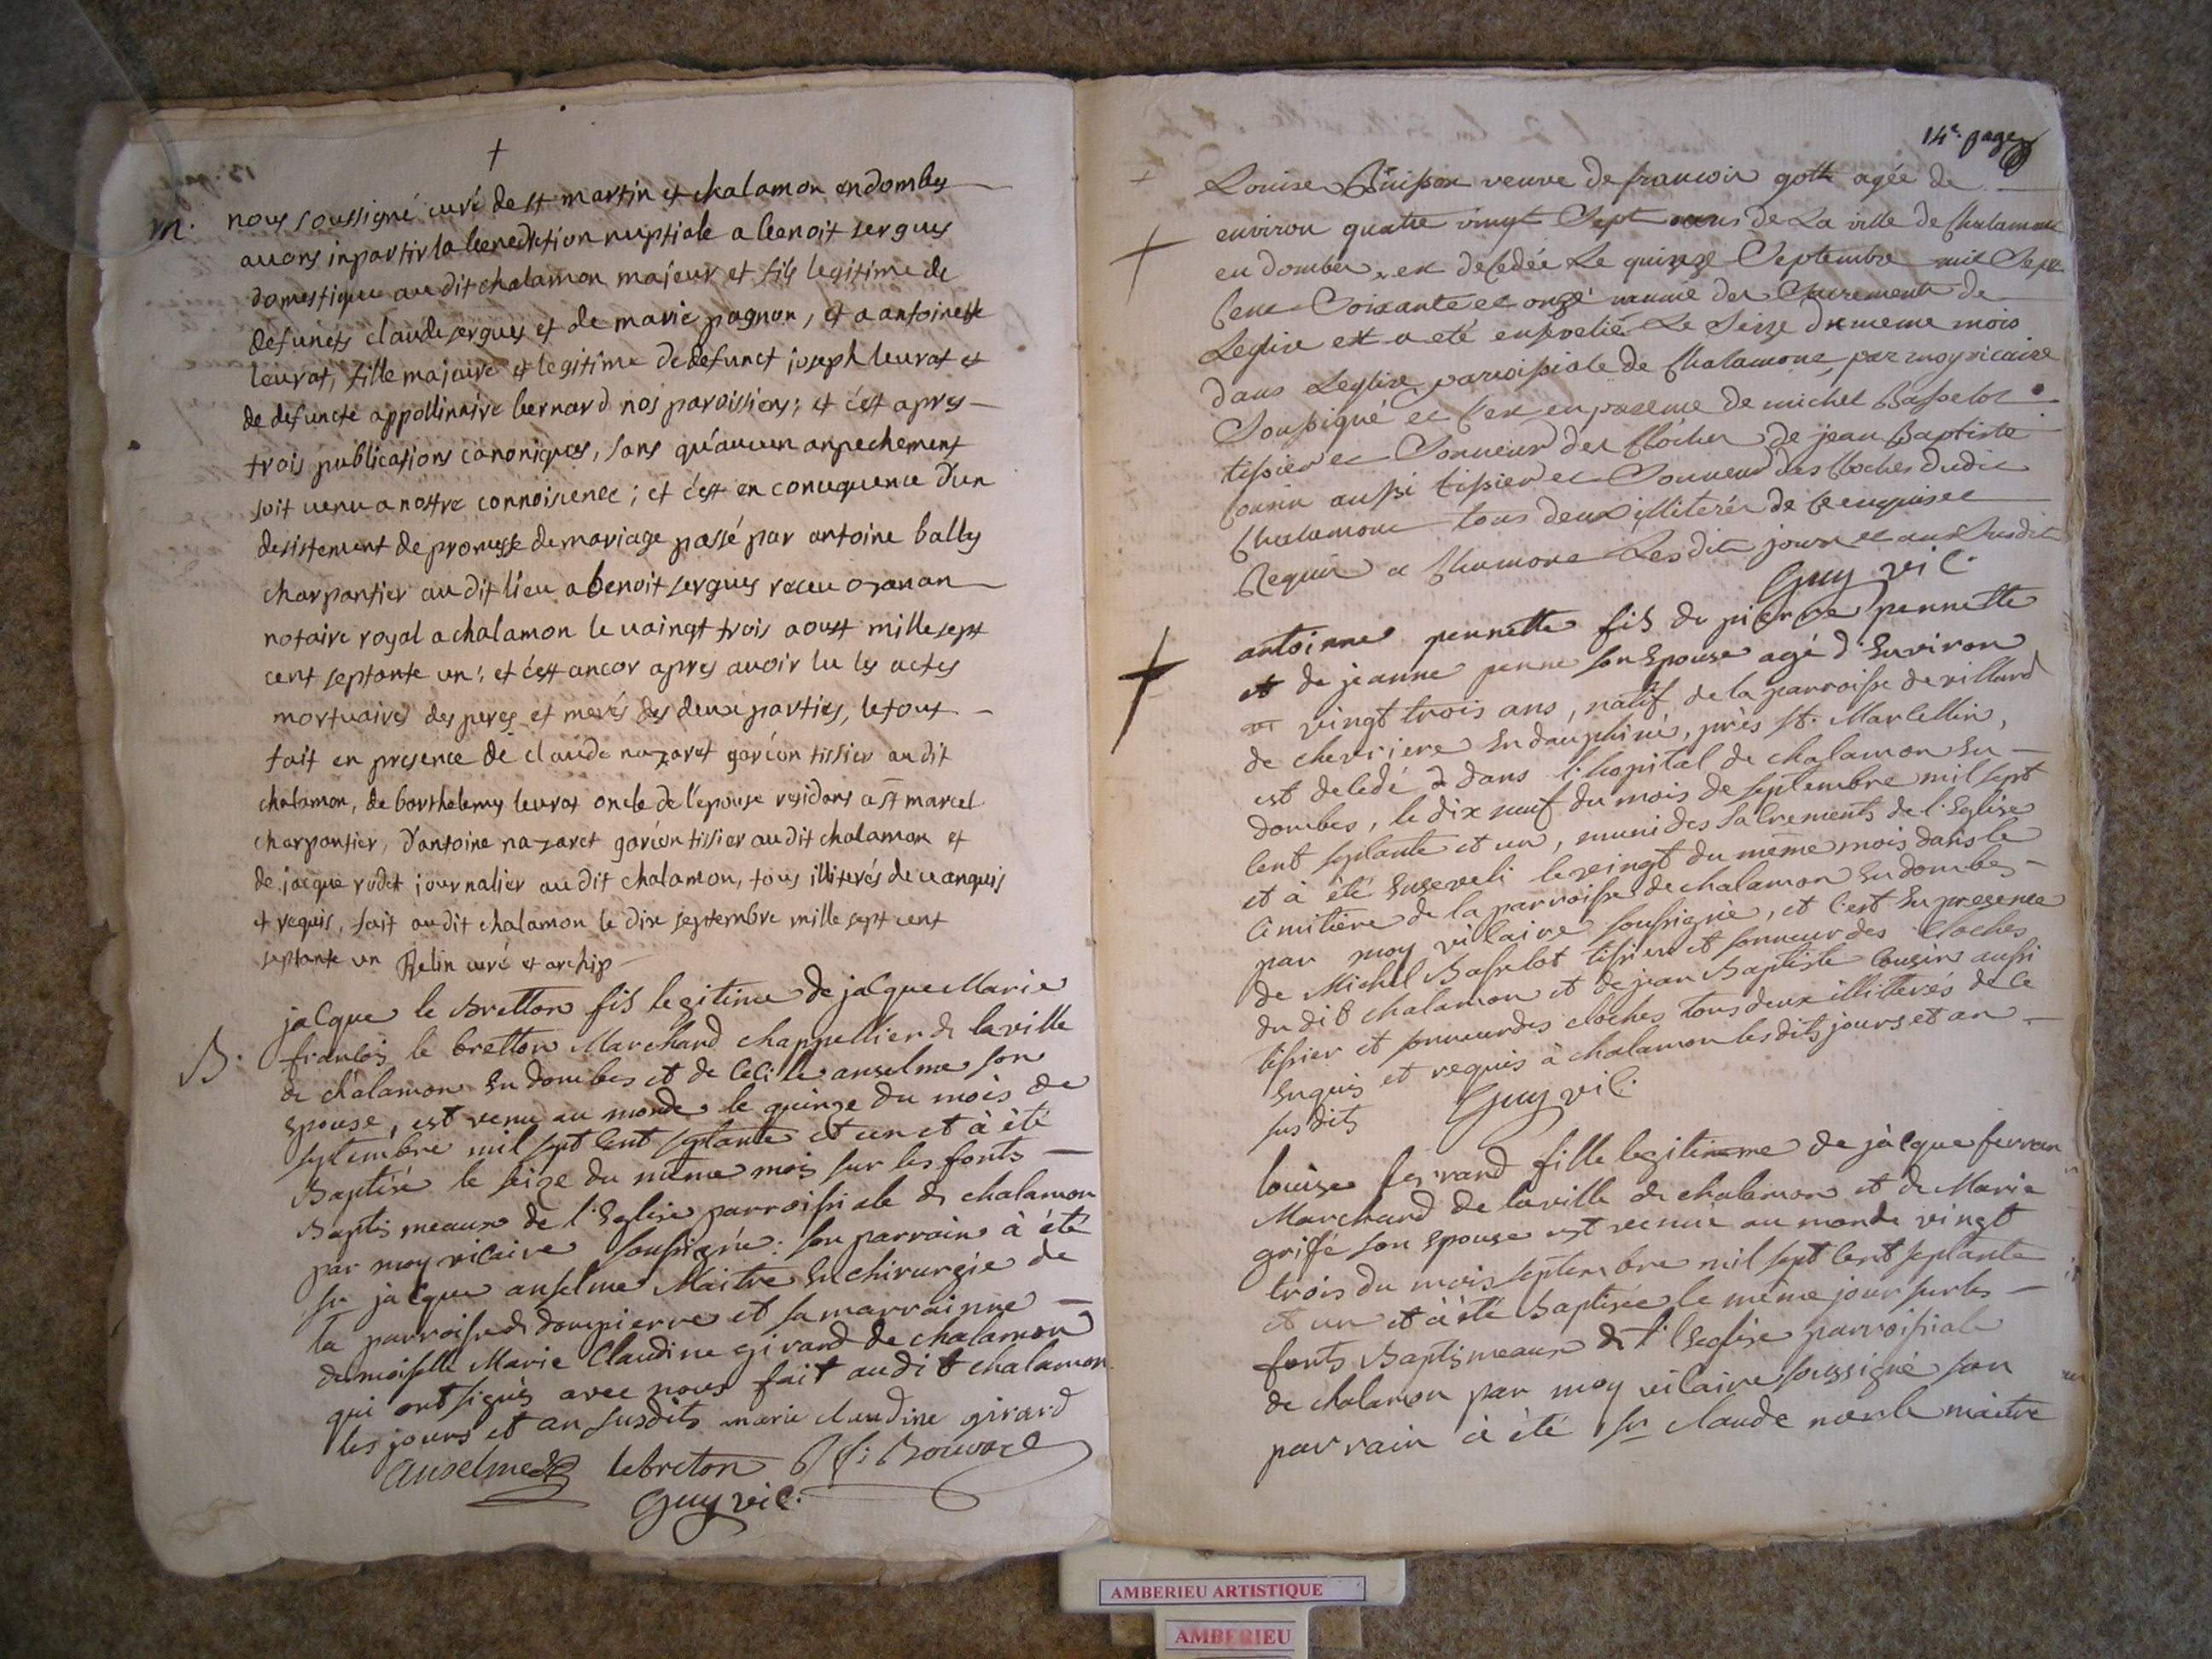 m. nous soussigné curé de st martin et chalamon en dombes
avons inpartir la benediction nuptiale a benoit sergues
domestique au dit chalamon majeur et fils legitime de
defuncts claude sergues et de marie pagnon, et a antoinette
leurat, fille majaure et legitime de defunct joseph leurat et
de defuncte appollinaire bernard nos paroissiens; et c'est apres
trois publications canoniques, sans qu'aucun anpechement
soit venu a nostre connoisence; et c'est en consequence d'un
desistement de promesse de mariage passé par antoine balley
charpantier au dit lieu a benoit sergues receu ozanan
notaire royal a chalamon le vaingt trois aoust mille sept
cent septante un; et c'est ancor apres avoir lu les actes
mortuaires des peres et meres des deux parties, le tout
fait en presence de claude nazaret garcon tissier au dit
chalamon, de barthelemy leurat oncle de l'epouse residans a st marcel
charpantier, d'antoine nazaret garcon tissier au dit chalamon et
de jacque rudet journalier au dit chalamon, tous illiterés de ce anquis
et requis, fait au dit chalamon le dix septembre mille sept cent
septante un Relin curé et archip
jacque le bretton fils legitime de jacque Marie
B. francois le bretton Marchand chappellier de la ville
de chalamon en dombes et de Cecile anselme son
epouse, est venu au monde le quinze du mois de
septembre mil sept cent septante et un et à été
Baptisé le seize du même mois sur les fonts
Baptismeaux de l'Eglise parroissiale de chalamon
par moy vicaire soussigné: son parrain à été
sr jacque anselme Maitre en chirurgie de
la parroisse de dompierre et sa marrainne
demoiselle Marie Claudine girard de chalamon
qui ont signés avec nous fait audit chalamon
les jours et an susdits marie claudine girard
anselme lebreton Bouvard
Guy vic.
14e. page
Louise Buisson veuve de francois gotte agée de
environ quatre vingt Sept ans de La ville de Chalamont
en dombes, est decedée Le quinze Septembre mil Sept
Cent Soixante et onze munie des Sacrements de
Leglise et a eté ensevelie Le Seize du meme mois
dans Leglise paroissiale de Chalamont par moy vicaire
Soussigné et C'est en presence de michel Basselot
tissier et Sonneur des Cloches de jean Baptiste
Cousin aussi tissier et Sonneur des Cloches dudit
Chalamont tous deux illiterés de Ce enquis et
Requis a Chamont Les dits jours et an Susdits
Guy vic.
antoinne pennette fils de pierre pennette
et de jeanne penne son epouse agé d'Environ
vingt trois ans, natif de la parroisse de villard
de chevriere en dauphiné, près st. Marcellin,
est decedé dans l'hopital de chalamon en
dombes, le dix neuf du mois de septembre mil sept
cent septante et un, muni des sacrements de l'Eglise
et à été enseveli le vingt du même mois dans le
cimitiere de la parroisse de chalamon en dombes
par moy vicaire soussigné, et c'est en presence
de Michel Basselot tissier et sonneur des cloches
du dit chalamon et de jean Baptiste Cousin aussi
tissier et sonneur des cloches tous deux illiterés de ce
enquis et requis à chalamon les dits jours et an
susdits Guy vic.
louise ferrand fille legitimme de jacque ferran
Marchand de la ville de chalamon et de Marie
grifé son epouse est venuë au monde vingt
trois du mois septembre mil sept cent septante
et un et à été Baptisée le même jour sur les
fonts Baptismeaux de l'Eglise parroissiale
de chalamon par moy vicaire soussigné son
parrain à été sr claude merle maitre
AMBERIEU ARTISTIQUE
AMBERIEU